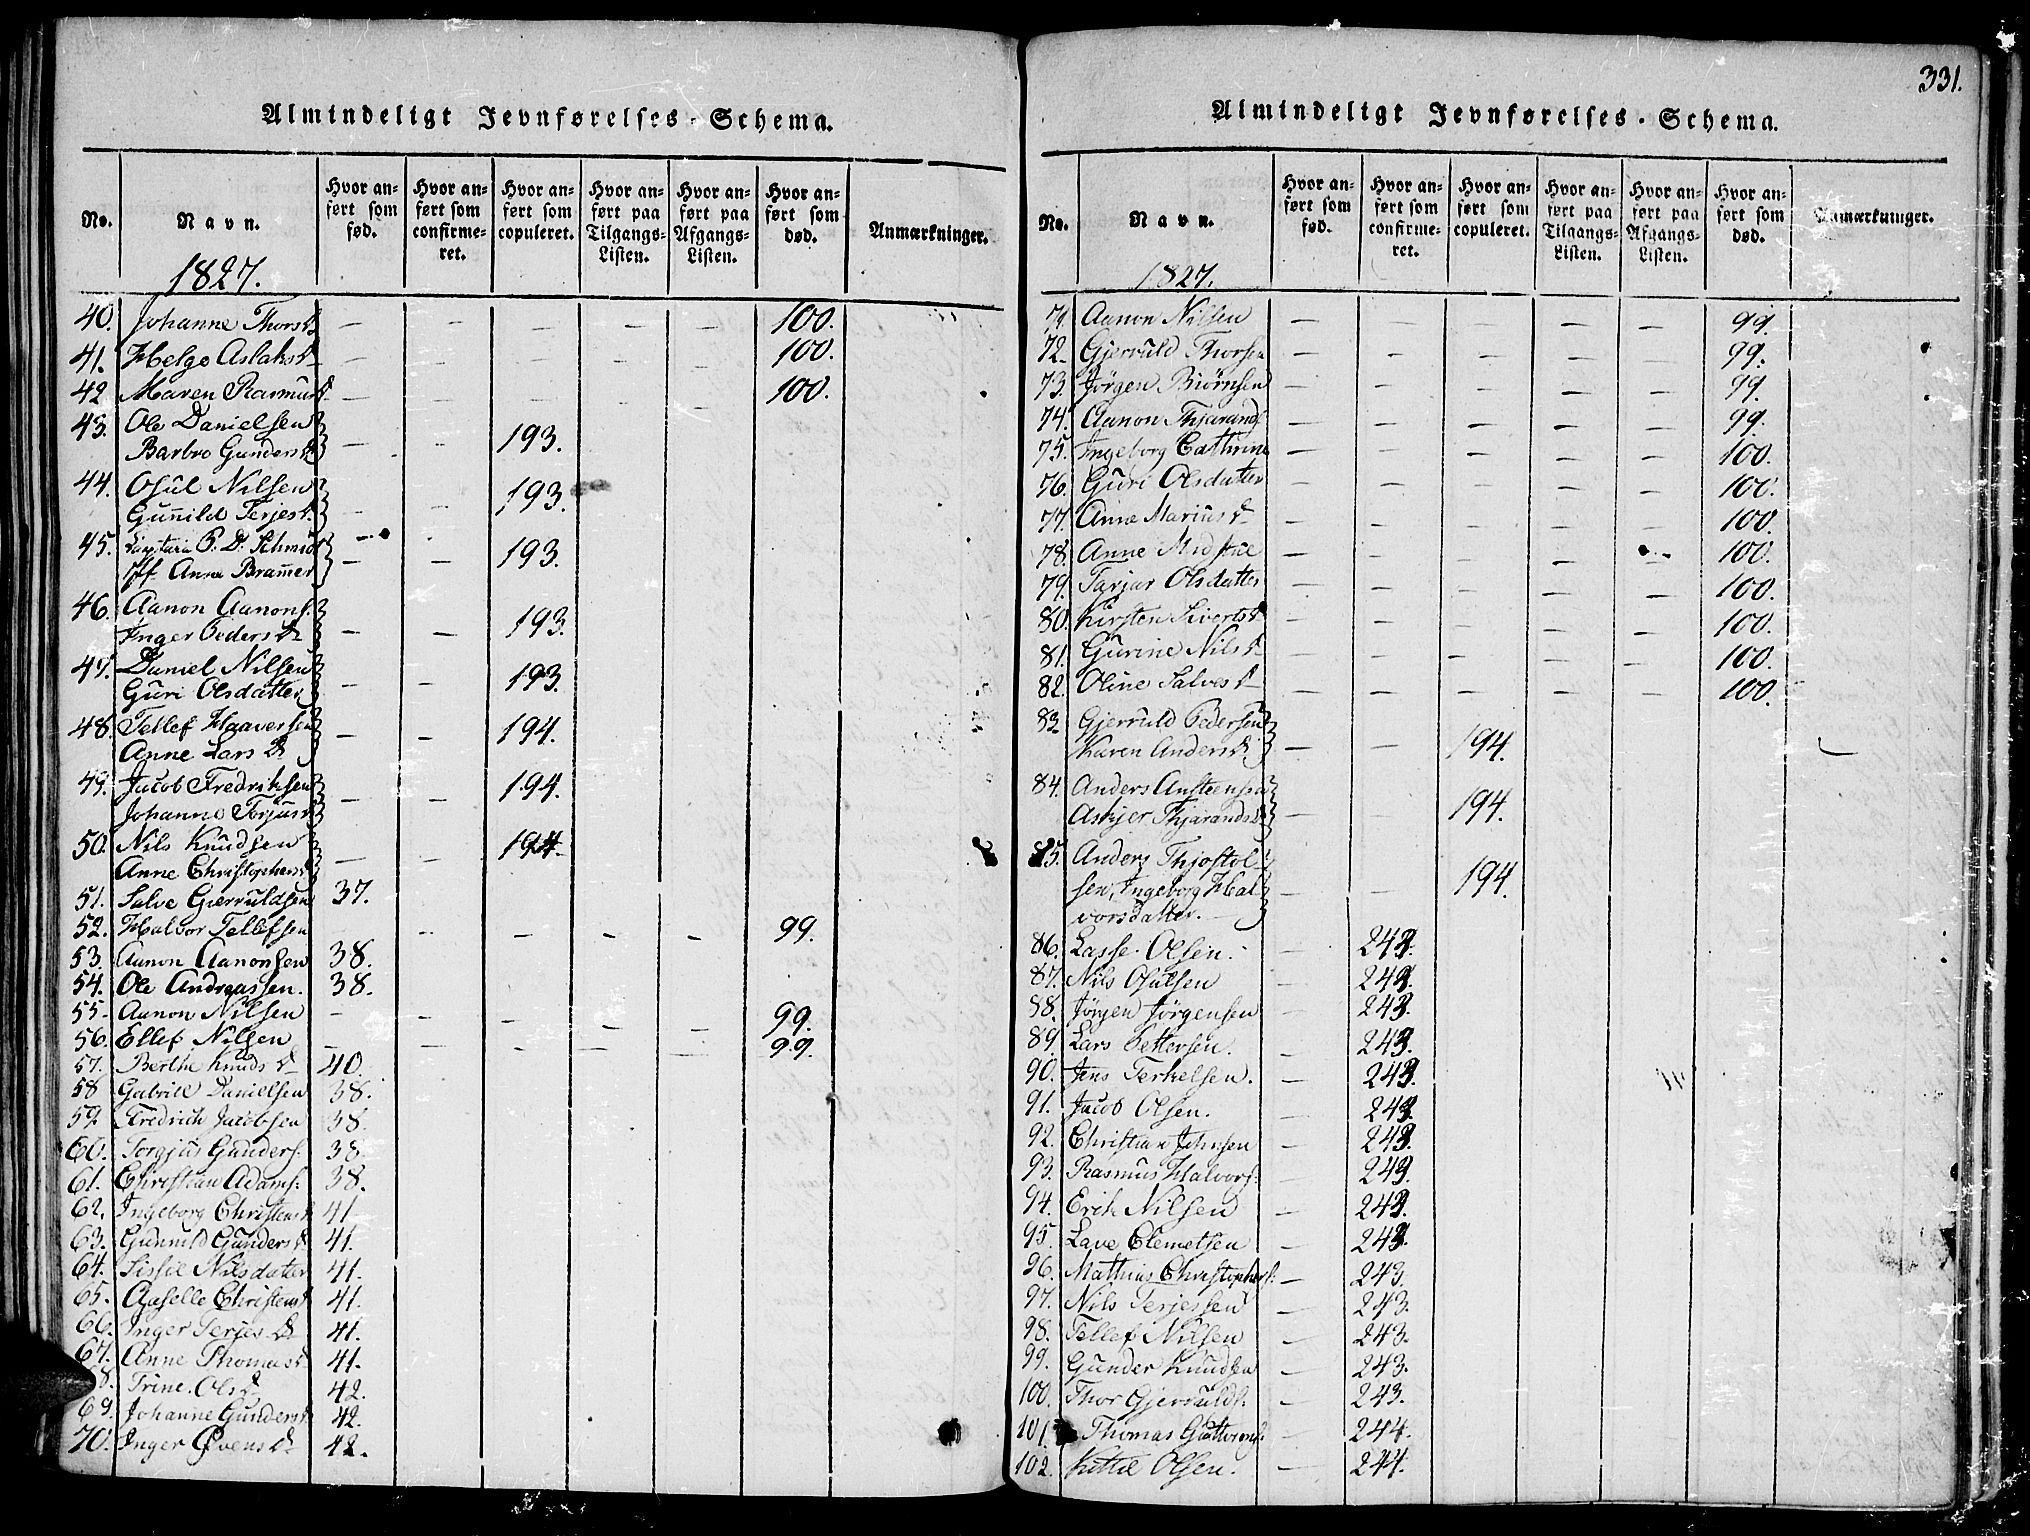 Almindeligt Jevnførelses-Schema.
No. Navn. Hvor anført som fød. Hvor anført som confirmeret. Hvor anført som copuleret. Hvor anført paa Tilgangs-Listen. Hvor anført paa Afgangs-Listen. Hvor anført som død. Anmærkninger.
1827.
40. Johanne Thorsd. — — — — — 100.
41. Helge Aslaksd. — — — — — 100.
42 Maren Rasmusd. — — — — — 100.
43. Ole Danielsen
Barbro Gundersd. — — 193.
44. Osul Nilsen
Gunild Terjesd. — — 193.
45. P. D. Schmidt
Anne Bramer — — 193.
46. Aanon Aanons:
Inger Pedersd. — — 193.
47. Daniel Nilsen
Guri Olsdatter — — 193.
48. Tellef Haaversen
Anne Larsd. — — 194.
49. Jacob Fredriksen
Johanne Torjusd. — — 194.
50. Nils Knudsen
Anne Christophersd. — — 194
51. Salve Gierruldsen 37.
52. Halvor Tellefsen — — — — — 99.
53. Aanon Aanonsen 38.
54. Ole Andreassen. 38.
55. Aanon Nilsen — — — — — 99.
56. Ellef Nilsen — — — — — 99.
57. Berthe Knudsd. 40.
58 Gabriel Danielsen 38.
59. Fredrich Jacobsen 38.
60. Torgjus Gunders: 38.
61. Christian Adams: 38.
62. Ingeborg Christensd. 41
63. Gunnild Gundersd. 41.
64. Sissil Nilsdatter 41.
65. Aaselle Christensd. 41.
66. Inger Terjesd. 41.
67. Anne Thomasd. 41.
8. Trine Olsd. 42.
69. Johanne Gundersd. 42.
70. Inger Evensd. 42.
331.
Almindeligt Jevnførelses-Schema.
No. Navn. Hvor anført som fød. Hvor anført som confirmeret. Hvor anført som copuleret. Hvor anført paa Tilgangs-Listen. Hvor anført paa Afgangs-Listen. Hvor anført som død. Anmærkninger.
1827.
71. Aanon Nilsen — — — — — 99.
72. Gjerruld Thorsen — — — — — 99.
73. Jörgen Biörnsen — — — — — 99.
74. Aanon Thjarands — — — — — 99.
75. Ingeborg Cathrine — — — — — 100.
76. Guri Olsdatter — — — — — 100.
77. Anne Mariusd. — — — — — 100.
78. Anne — — — — — 100.
79. Tarjer Olsdatter — — — — — 100.
80. Kirsten Sivertsd. — — — — — 100.
81. Gurine Nilsd. — — — — — 100.
82. Oline Salvesd. — — — — — 100.
83. Gjerruld Pedersen
Karen Andersd. — — 194.
84. Anders Ansteensen
Askjer Thjarandsd. — — 194.
85. Anders Thjostol
sen, Ingeborg Hal — — 194.
vorsdatter.
86. Lasse Olsen. — 243.
87. Nils Osulsen — 243.
88. Jörgen Jörgensen — 243.
89. Lars Pettersen. — 243.
90. Jens Terkelsen. — 243.
91. Jacob Olsen. — 243.
92. Christian Johnsen — 243.
93. Rasmus Halvors: — 243.
94. Erik Nilsen — 243.
95. Lave Clemetsen — 243.
96. Mathias Christophers: — 243.
97. Nils Terjessen — 243.
98. Tellef Nilsen — 243.
99. Gunder Knudsen — 243.
100. Thor Gjerrulds. — 243.
101. Thomas Guttorms: — 244.
102. Kittil Olsen. — 244.